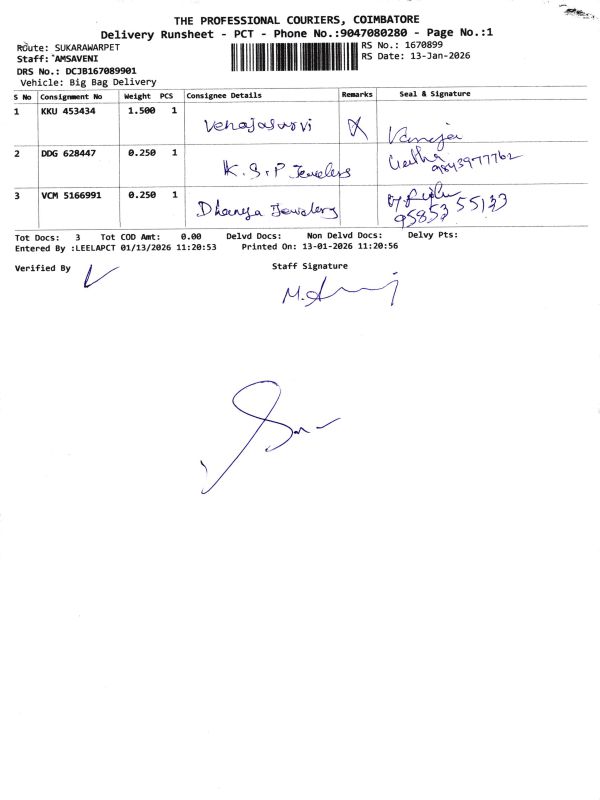 THE PROFESSIONAL COURIERS, COIMBATORE
Delivery Runsheet - PCT - Phone No.:9047080280 - Page No.:1
Route: SUKARAWARPET
RS No.: 1670899
Staff: AMSAVENI
RS Date: 13-Jan-2026
DRS No.: DCJB167089901
Vehicle: Big Bag Delivery
S No Consignment No Weight PCS Consignee Details Remarks Seal & Signature
1 KKU 453434 1.500 1
2 DDG 628447 0.250 1 K.S.P Jewelers 9843977762
3 VCM 5166991 0.250 1 Dhanya Jewelery
Tot Docs: 3 Tot COD Amt: 0.00 Delvd Docs: Non Delvd Docs: Delvy Pts:
Entered By :LEELAPCT 01/13/2026 11:20:53 Printed On: 13-01-2026 11:20:56
Verified By Staff Signature